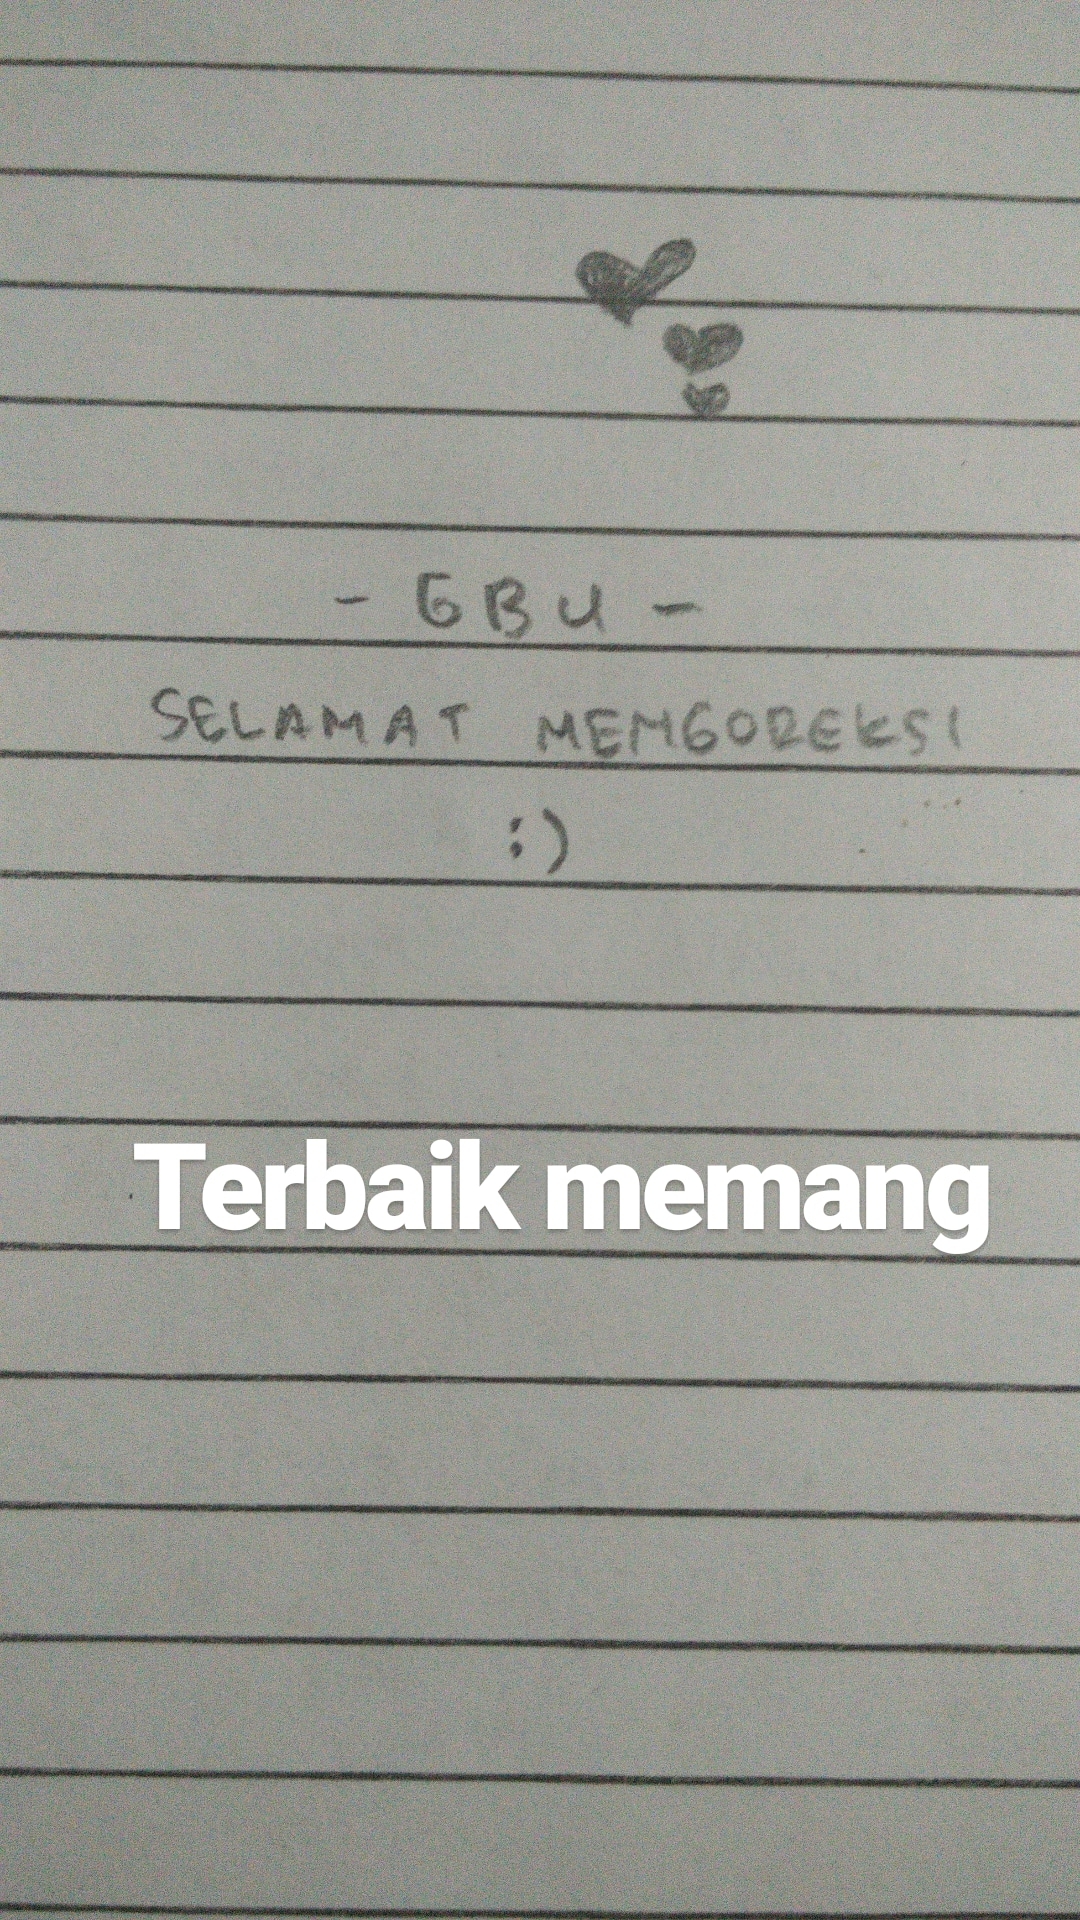 - GBU -
SELAMAT MENGOREKSI
:)
Terbaik memang